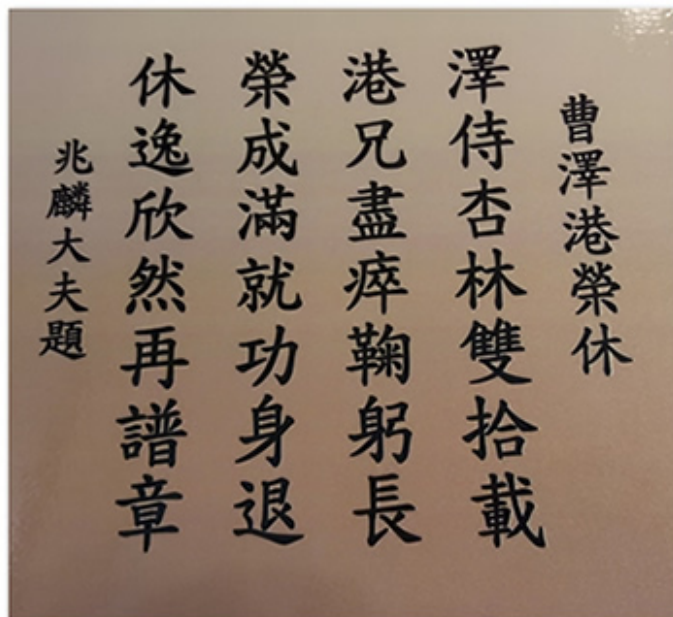 曹澤港榮休
澤侍杏林雙拾載
港兄盡瘁鞠躬長
榮成滿就功身退
休逸欣然再譜章
兆麟大夫題